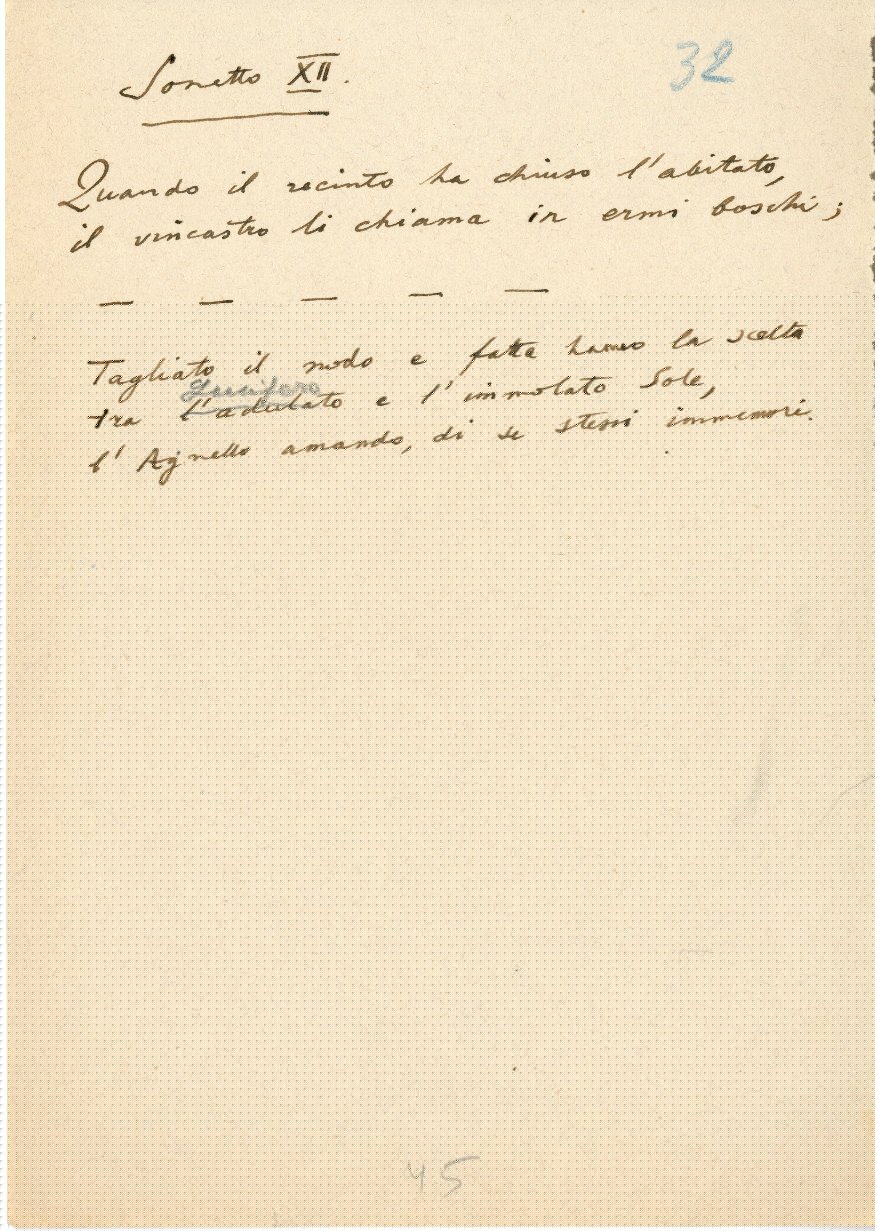 Sonetto XII.
32
Quando il recinto ha chiuso l'abitato,
il vincastro li chiama in ermi boschi;
— — — — —
Tagliato il nodo e fatta hanno la scelta
Lucifero
tra l'adulato e l'immolato Sole,
l'Agnello amando, di se stessi immemori.
45